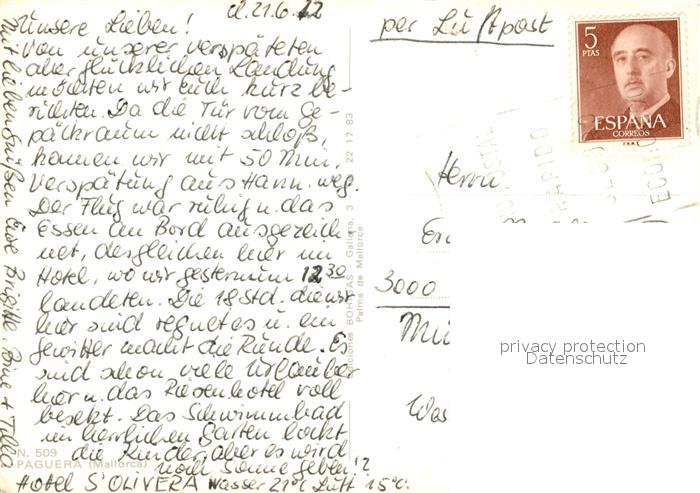 d. 21.6.72
Unsere Lieben!
Von unserer verspäteten
aber glücklichen Landung
möchten wir euch kurz be-
richten. Da die Tür vom Ge-
päckraum nicht schloß,
kamen wir mit 50 Min.
Verspätung aus Hann. weg.
Der Flug war ruhig u. das
Essen an Bord ausgezeich-
net, desgleichen hier im
Hotel, wo wir gestern um 12 30
landeten. Die 18 Std. die wir
hier sind regnet es u. ein
Gewitter macht die Runde. Es
sind schon viele Urlauber
hier u. das Riesenhotel voll
besetzt. Das Schwimmbad
im herrlichen Garten lockt
die Kinder, aber es wird
noch Sonne geben!?
Hotel S'OLIVERA Wasser 21°C Luft 15°C.
Mit lieben Grüßen Eure Brigitte,
N. 509
PAGUERA (Mallorca)
BOHIGAS - Galiana, 3 22 17 83
Palma de Mallorca
per Luftpost
5
PTAS
ESPAÑA
CORREOS
F.N.M.T.
RAPIDO
Herrn
3000
privacy protection
Datenschutz